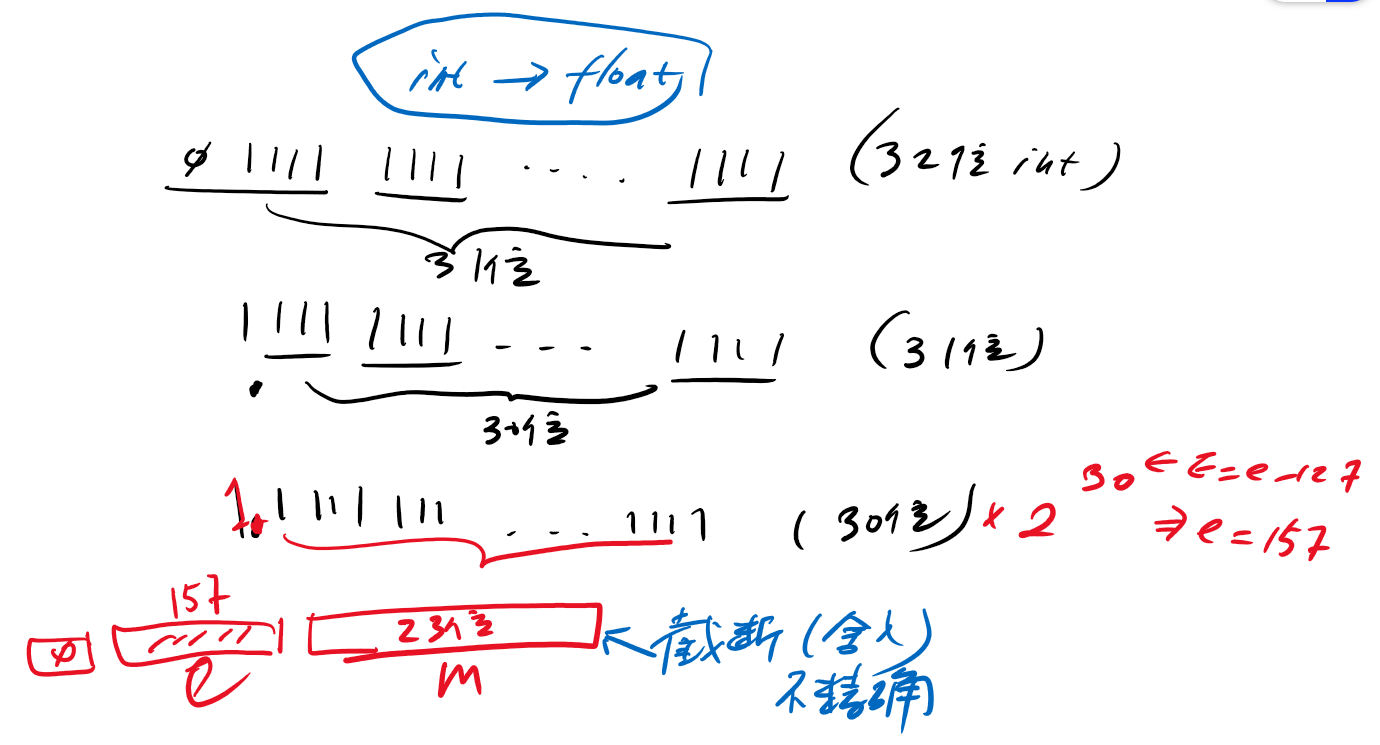 int → float
0 1111 1111 ..... 1111 (32位 int)
31位
1111 1111 --- 1111 (31位)
.
30位
1.1111 111 ... 1111 (30位) × 2^30 ← E=e-127
⇒ e=157
157
0 23位 ← 截断(舍入)
e m 不精确